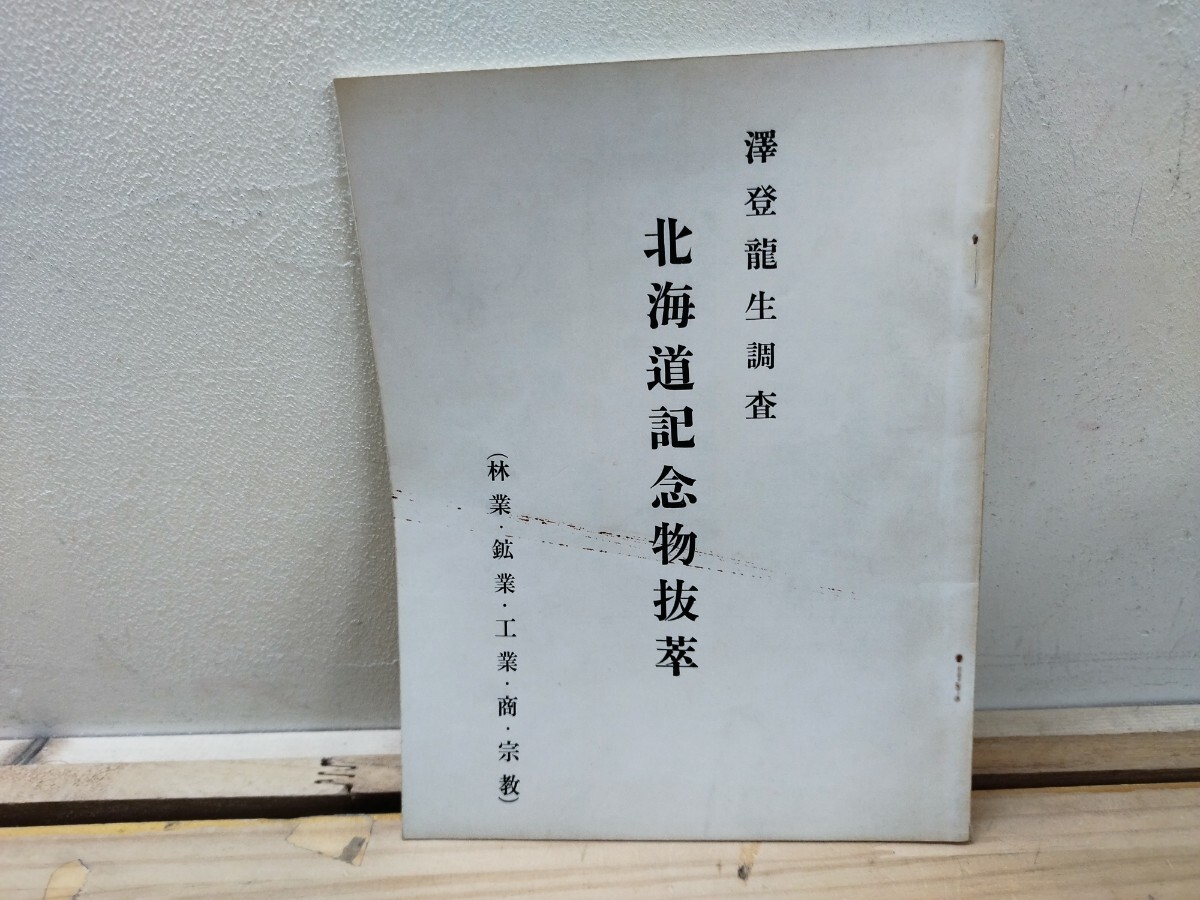 澤登龍生調査
北海道記念物抜萃
(林業・鉱業・工業・商・宗教)